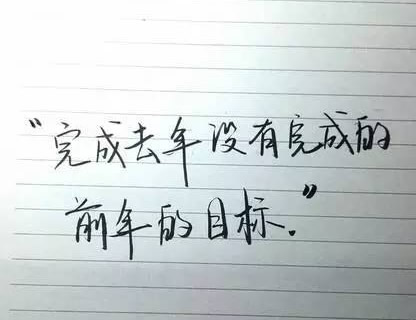 “完成去年没有完成的
前年的目标.”